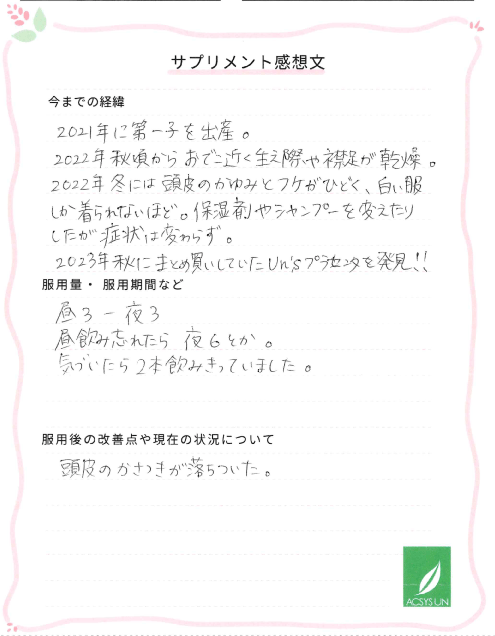 サプリメント感想文
今までの経緯
2021年に第一子を出産。
2022年秋頃からおでこ近く生え際や襟足が乾燥。
2022年冬には頭皮のかゆみとフケがひどく、白い服
しか着られないほど。保湿剤やシャンプーを変えたり
したが症状は変わらず。
2023年秋にまとめ買いしていたUn'sプラセンタを発見!!
服用量・服用期間など
昼3－夜3
昼飲み忘れたら 夜6とか。
気づいたら2本飲みきっていました。
服用後の改善点や現在の状況について
頭皮のかさつきが落ちついた。
ACSYS UN